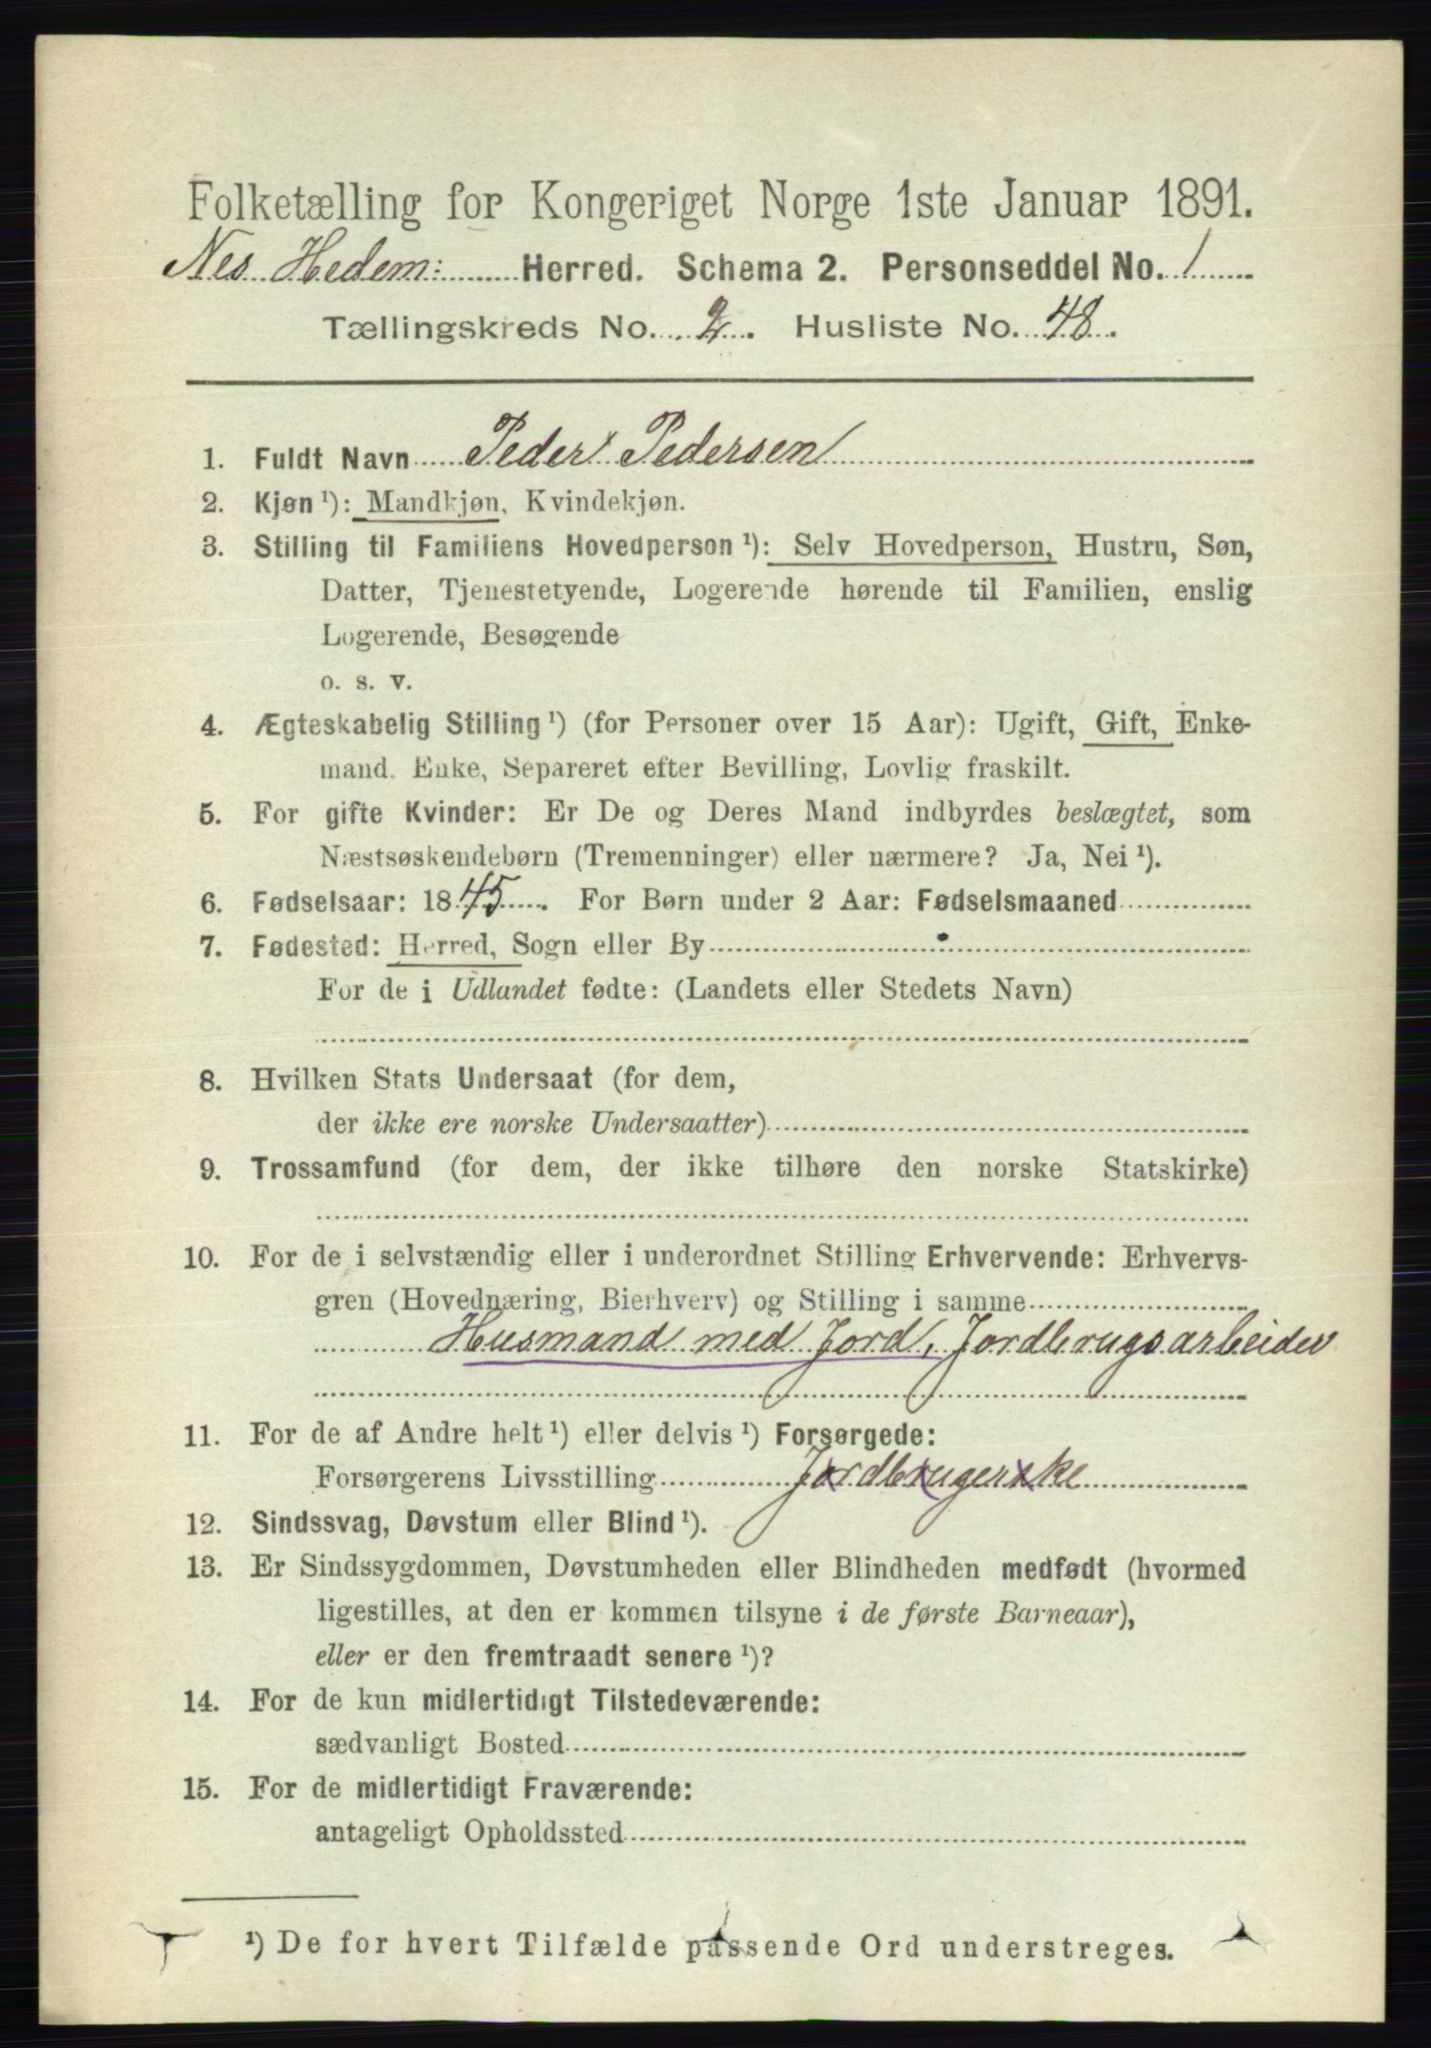 Folketælling for Kongeriget Norge 1ste Januar 1891.
Nes Hedem: Herred. Schema 2. Personseddel No. 1
Tællingskreds No. 2. Husliste No. 48.
1. Fuldt Navn Peder Pedersen
2. Kjøn ¹): Mandkjøn, Kvindekjøn.
3. Stilling til Familiens Hovedperson ¹): Selv Hovedperson, Hustru, Søn,
Datter, Tjenestetyende, Logerende hørende til Familien, enslig
Logerende, Besøgende
o. s. v.
4. Ægteskabelig Stilling ¹) (for Personer over 15 Aar): Ugift, Gift, Enke-
mand, Enke, Separeret efter Bevilling, Lovlig fraskilt.
5. For gifte Kvinder: Er De og Deres Mand indbyrdes beslægtet, som
Næstsøskendebørn (Tremenninger) eller nærmere? Ja, Nei ¹).
6. Fødselsaar: 1845. For Børn under 2 Aar: Fødselsmaaned
7. Fødested: Herred, Sogn eller By
For de i Udlandet fødte: (Landets eller Stedets Navn)
8. Hvilken Stats Undersaat (for dem,
der ikke ere norske Undersaatter)
9. Trossamfund (for dem, der ikke tilhøre den norske Statskirke)
10. For de i selvstændig eller i underordnet Stilling Erhvervende: Erhvervs-
gren (Hovednæring, Bierhverv) og Stilling i samme
Husmand med Jord, Jordbrugsarbeider
11. For de af Andre helt ¹) eller delvis ¹) Forsørgede:
Forsørgerens Livsstilling Jordbrugerske
12. Sindssvag, Døvstum eller Blind ¹).
13. Er Sindssygdommen, Døvstumheden eller Blindheden medfødt (hvormed
ligestilles, at den er kommen tilsyne i de første Barneaar),
eller er den fremtraadt senere ¹)?
14. For de kun midlertidigt Tilstedeværende:
sædvanligt Bosted
15. For de midlertidigt Fraværende:
antageligt Opholdssted
¹) De for hvert Tilfælde passende Ord understreges.